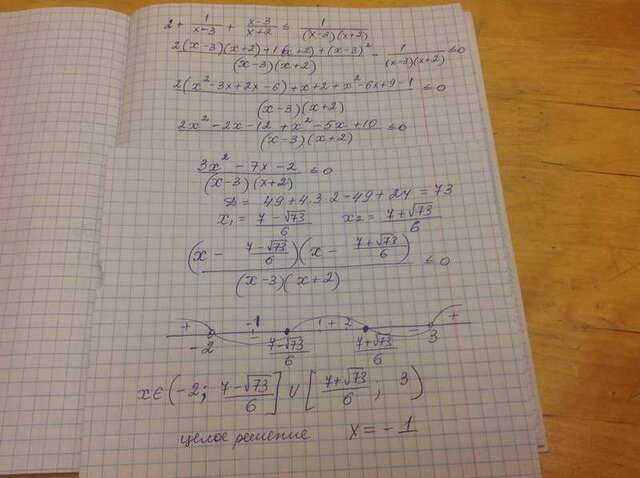 2 + 1/(x-3) + (x-3)/(x+2) ≤ 1/((x-3)(x+2))
(2(x-3)(x+2)+1(x+2)+(x-3)²)/((x-3)(x+2)) - 1/((x-3)(x+2)) ≤0
(2(x²-3x+2x-6)+x+2+x²-6x+9-1)/((x-3)(x+2)) ≤0
(2x²-2x-12+x²-5x+10)/((x-3)(x+2)) ≤0
(3x²-7x-2)/((x-3)(x+2)) ≤0
D= 49+4·3·2=49+24=73
x₁= (7-√73)/6 x₂= (7+√73)/6
((x - (7-√73)/6)(x - (7+√73)/6))/((x-3)(x+2)) ≤0
+ -1 - 1 + 2 - +
-2 (7-√73)/6 (7+√73)/6 3
x∈(-2; (7-√73)/6] ∪ [(7+√73)/6, 3)
целое решение x=-1